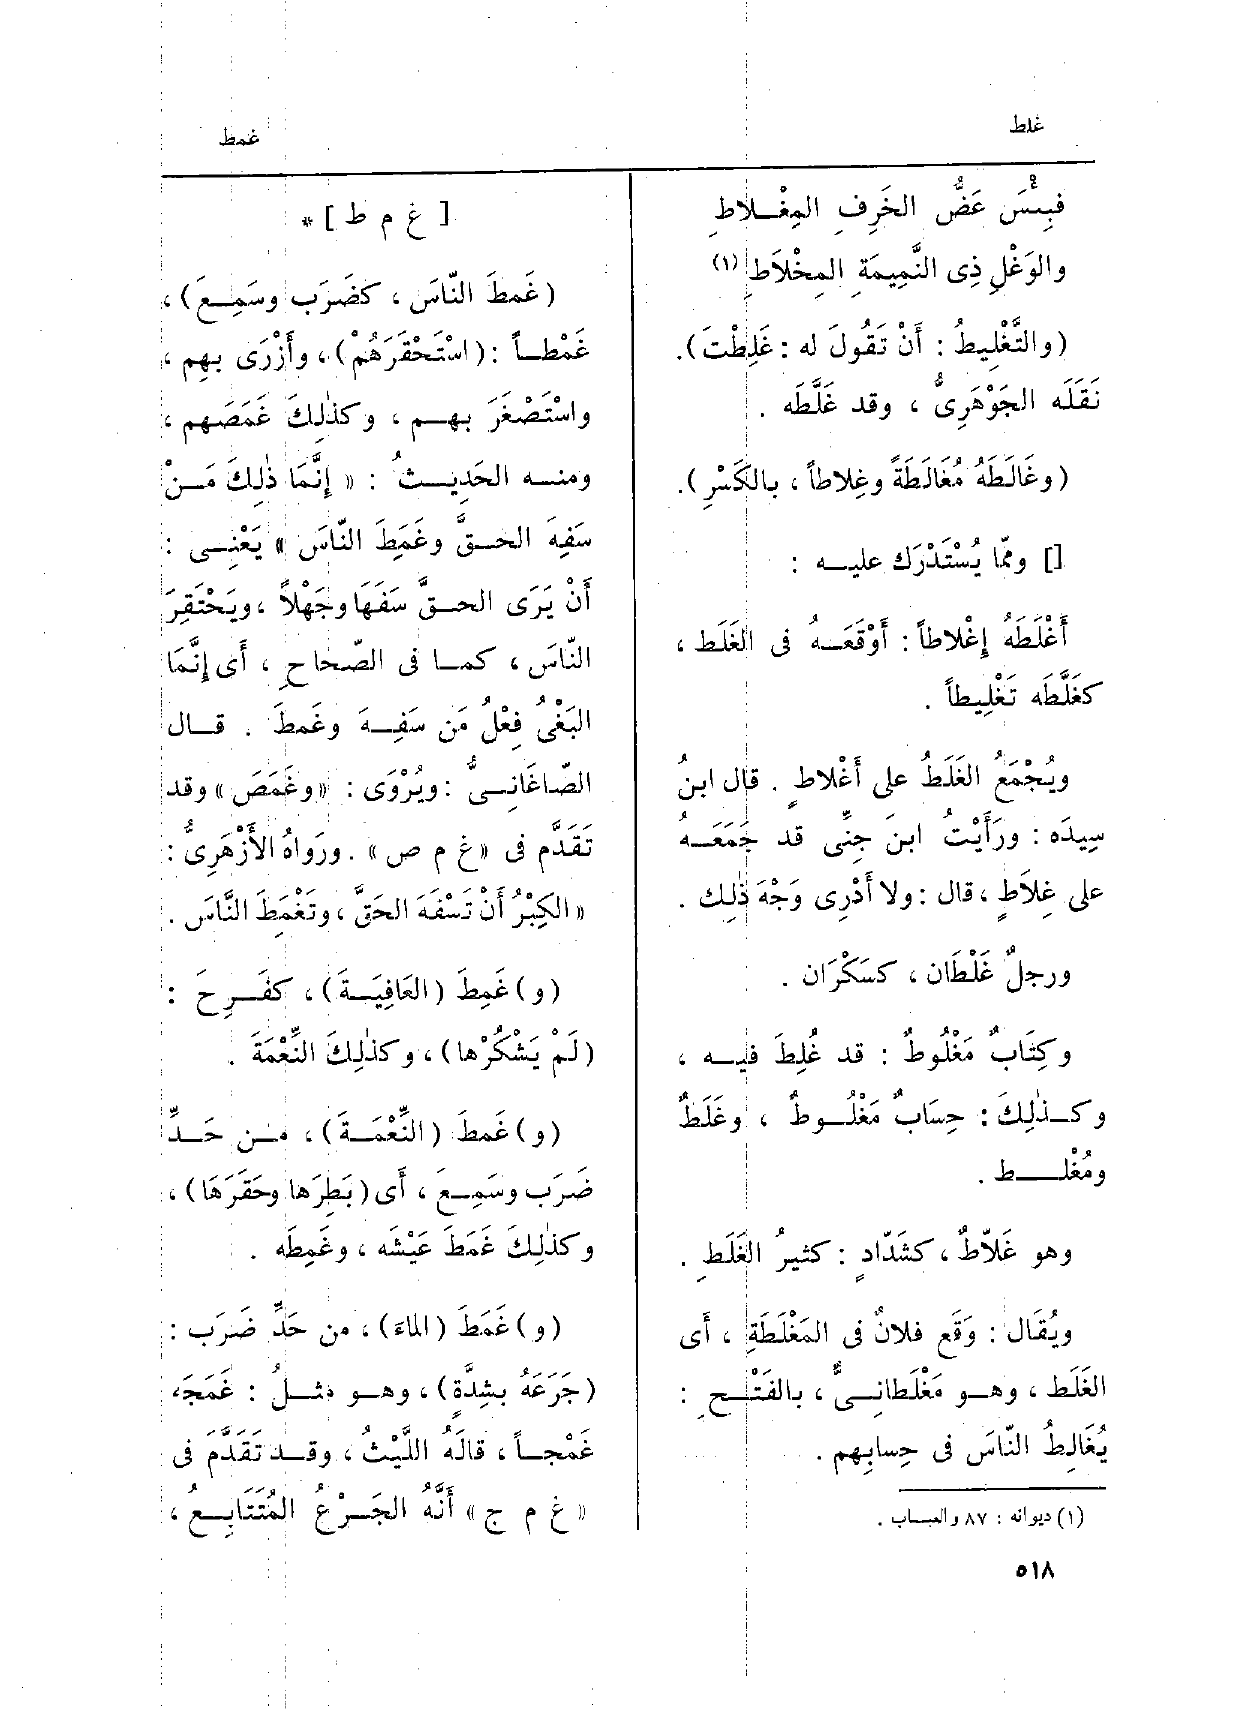 غلط
غمط
فبِئْسَ عَضُّ الخَرِفِ المِغْـلاطِ
والوَغْلِ ذِى النَّمِيمَةِ المِخْلَاطِ (١)
(والتَّغْلِيطُ : أَنْ تَقُولَ له : غَلِطْتَ).
نَقَلَه الجَوْهَرِىُّ ، وقد غَلَّطَه .
(وغَالَطَهُ مُغَالَطَةً وغِلاطاً ، بالكَسْرِ).
[] وممّا يُسْتَدْرَك عليـه :
أَغْلَطَهُ إِغْلاطاً : أَوْقَعَـهُ فى الغَلَط ،
كغَلَّطَه تَغْلِيطاً .
ويُجْمَعُ الغَلَطُ على أَغْلاطٍ . قال ابنُ
سِيدَه : ورَأَيْتُ ابنَ جِنِّى قد جَمَعَـهُ
على غِلَاطٍ ، قال : ولا أَدْرِى وَجْهَ ذٰلِك .
ورجلٌ غَلْطَان ، كسَكْرَان .
وكِتَابٌ مَغْلُوطٌ : قد غُلِطَ فيـه ،
وكـذٰلِكَ : حِسَابٌ مَغْلُـوطٌ ، وغَلَطٌ
ومُغْلَـط .
وهو غَلّاطٌ ، كشَدّادٍ : كثيرُ الغَلَطِ .
ويُقَال : وَقَع فلانٌ فى المَغْلَطَةِ ، أَى
الغَلَط ، وهـو مَغْلَطانِـىٌّ ، بالفَتْـحِ :
يُغَالِطُ النَّاسَ فى حِسابِهم .
(١) ديوانه : ٨٧ والعبـاب .
٥١٨
[ غ م ط ] *
(غَمِطَ النّاسَ ، كضَرَب وسَمِـعَ) ،
غَمْطـاً : (اسْتَحْقَرَهُمْ) ، وأَزْرَى بهِم ،
واسْتَصْغَرَ بهـم ، وكذٰلِكَ غَمَصَهم ،
ومنـه الحَدِيـثُ : « إِنَّمَا ذٰلِكَ مَـنْ
سَفِهَ الحـقَّ وغَمِطَ النّاسَ » يَعْنِـى :
أَنْ يَرَى الحـقَّ سَفَهَا وجَهْلاً ، ويَحْتَقِرَ
النّاسَ ، كمـا فى الصّحاحِ ، أَى إِنَّمَا
البَغْىُ فِعْلُ مَن سَفِـهَ وغَمِطَ . قـال
الصّاغَانِـىُّ : ويُرْوَى : «وغَمَصَ» وقد
تَقَدَّم فى «غ م ص» . ورَواهُ الأَزْهَرِىُّ :
« الكِبْرُ أَنْ تَسْفَهَ الحَقَّ ، وتَغْمَطَ النَّاسَ .
(و) غَمِطَ (العَافِيَـةَ) ، كفَـرِحَ :
(لَمْ يَشْكُرْها) ، وكذٰلِكَ النِّعْمَةَ .
(و) غَمطَ (النِّعْمَـةَ) ، مـن حَـدِّ
ضَرَب وسَمِـعَ ، أَى (بَطِرَها وحَقَرَهَا) ،
وكذٰلِكَ غَمَطَ عَيْشَه ، وغَمِطَه .
(و) غَمَطَ (الماءَ) ، من حَدِّ ضَرَب :
(جَرَعَهُ بشِدَّةٍ) ، وهـو مثـلُ : غَمَجَه
غَمْجـاً ، قالَهُ اللَّيْثُ ، وقـد تَقَدَّم فى
« غ م ج » أَنَّهُ الجَـرْعُ المُتَتَابِـعُ ،